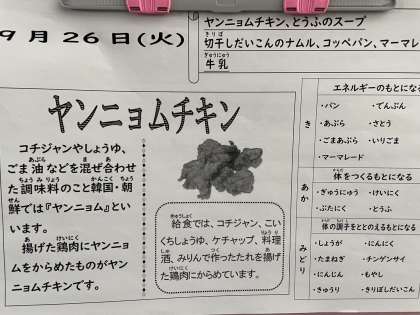 9月26日(火)
ヤンニョムチキン、とうふのスープ
切干しだいこんのナムル、コッペパン、マーマレ
牛乳
ヤンニョムチキン
コチジャンやしょうゆ、
ごま油などを混ぜ合わせ
た調味料のこと韓国・朝
鮮では『ヤンニョム』とい
います。
揚げた鶏肉にヤンニョ
ムをからめたものがヤン
ニョムチキンです。
給食では、コチジャン、こい
くちしょうゆ、ケチャップ、料理
酒、みりんで作ったたれを揚げ
た鶏肉にからめています。
エネルギーのもとになる
き
・パン ・でんぷん
・あぶら ・さとう
・ごまあぶら ・いりごま
・マーマレード
体をつくるもとになる
あか
・ぎゅうにゅう ・けいにく
・ぶたにく ・とうふ
体の調子をととのえるもとになる
みどり
・しょうが ・にんにく
・たまねぎ ・チンゲンサイ
・にんじん ・もやし
・きゅうり ・きりぼしだいこん